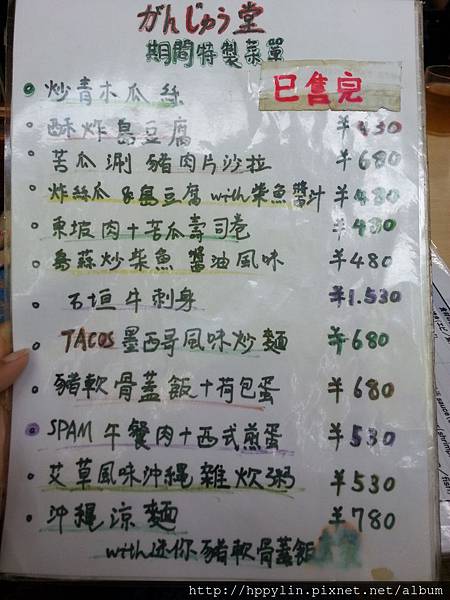 がんじゅう堂
期間特製菜單
炒青木瓜絲 已售完
酥炸島豆腐 ¥430
苦瓜涮豬肉片沙拉 ¥680
炸絲瓜&島豆腐with柴魚醬汁 ¥480
東坡肉+苦瓜壽司卷 ¥480
島蒜炒柴魚醬油風味 ¥480
石垣牛刺身 ¥1.530
TACOS墨西哥風味炒麵 ¥680
豬軟骨蓋飯+荷包蛋 ¥680
SPAM午餐肉+西式煎蛋 ¥530
艾草風味沖縄雜炊粥 ¥530
沖縄涼麵 ¥780
with迷你豬軟骨蓋飯
http://hppylin.pixnet.net/album